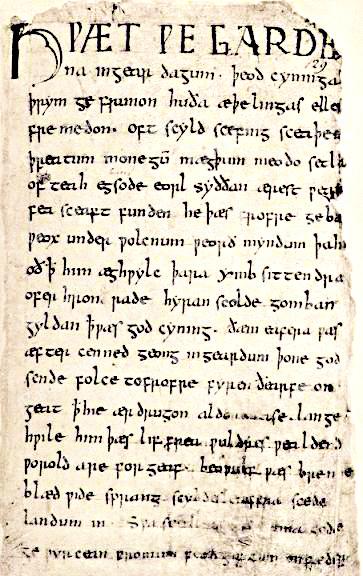 HǷÆT ǷE GARDE
na ingear dagum. þeod cyninga
þrym ge frunon huða æþelingas elle
fremedon. oft scyld scefing sceaþe
þreatum monegū mægþum meodo setla
of teah egsode eorl syððan ærest ƿear
fea sceaft funden he þæs frofre geba
ƿeox under ƿolcnum ƿeorð myndum þah
oð ꝥ him æghƿylc þara ymb sittendra
ofer hron rade hyran scolde gomban
gyldan ꝥ ƿæs god cyning. ðæm eafera ƿæs
æfter cenned geong ingeardum þone god
sende folce tofrofre fyren ðearfe on
geat ꝥ hie ær drugon aldor ase. lange
hƿile him þæs lif frea ƿuldres ƿealdend
ƿorold are forgeaf. beoƿulf ƿæs breme
blæd ƿide sprang scyldes eafera scede
landum in. Sƿa sceal guma gode
ge ƿyrcean fromum feoh giftum